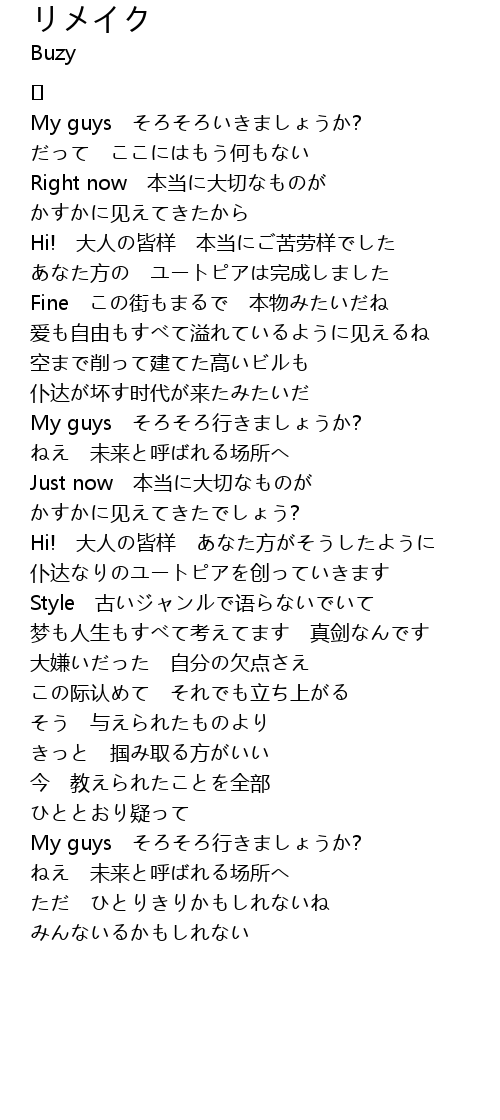 リメイク
Buzy
[]
My guys　そろそろいきましょうか?
だって　ここにはもう何もない
Right now　本当に大切なものが
かすかに见えてきたから
Hi!　大人の皆样　本当にご苦劳样でした
あなた方の　ユートピアは完成しました
Fine　この街もまるで　本物みたいだね
爱も自由もすべて溢れているように见えるね
空まで削って建てた高いビルも
仆达が坏す时代が来たみたいだ
My guys　そろそろ行きましょうか?
ねえ　未来と呼ばれる场所へ
Just now　本当に大切なものが
かすかに见えてきたでしょう?
Hi!　大人の皆样　あなた方がそうしたように
仆达なりのユートピアを创っていきます
Style　古いジャンルで语らないでいて
梦も人生もすべて考えてます　真剑なんです
大嫌いだった　自分の欠点さえ
この际认めて　それでも立ち上がる
そう　与えられたものより
きっと　掴み取る方がいい
今　教えられたことを全部
ひととおり疑って
My guys　そろそろ行きましょうか?
ねえ　未来と呼ばれる场所へ
ただ　ひとりきりかもしれないね
みんないるかもしれない